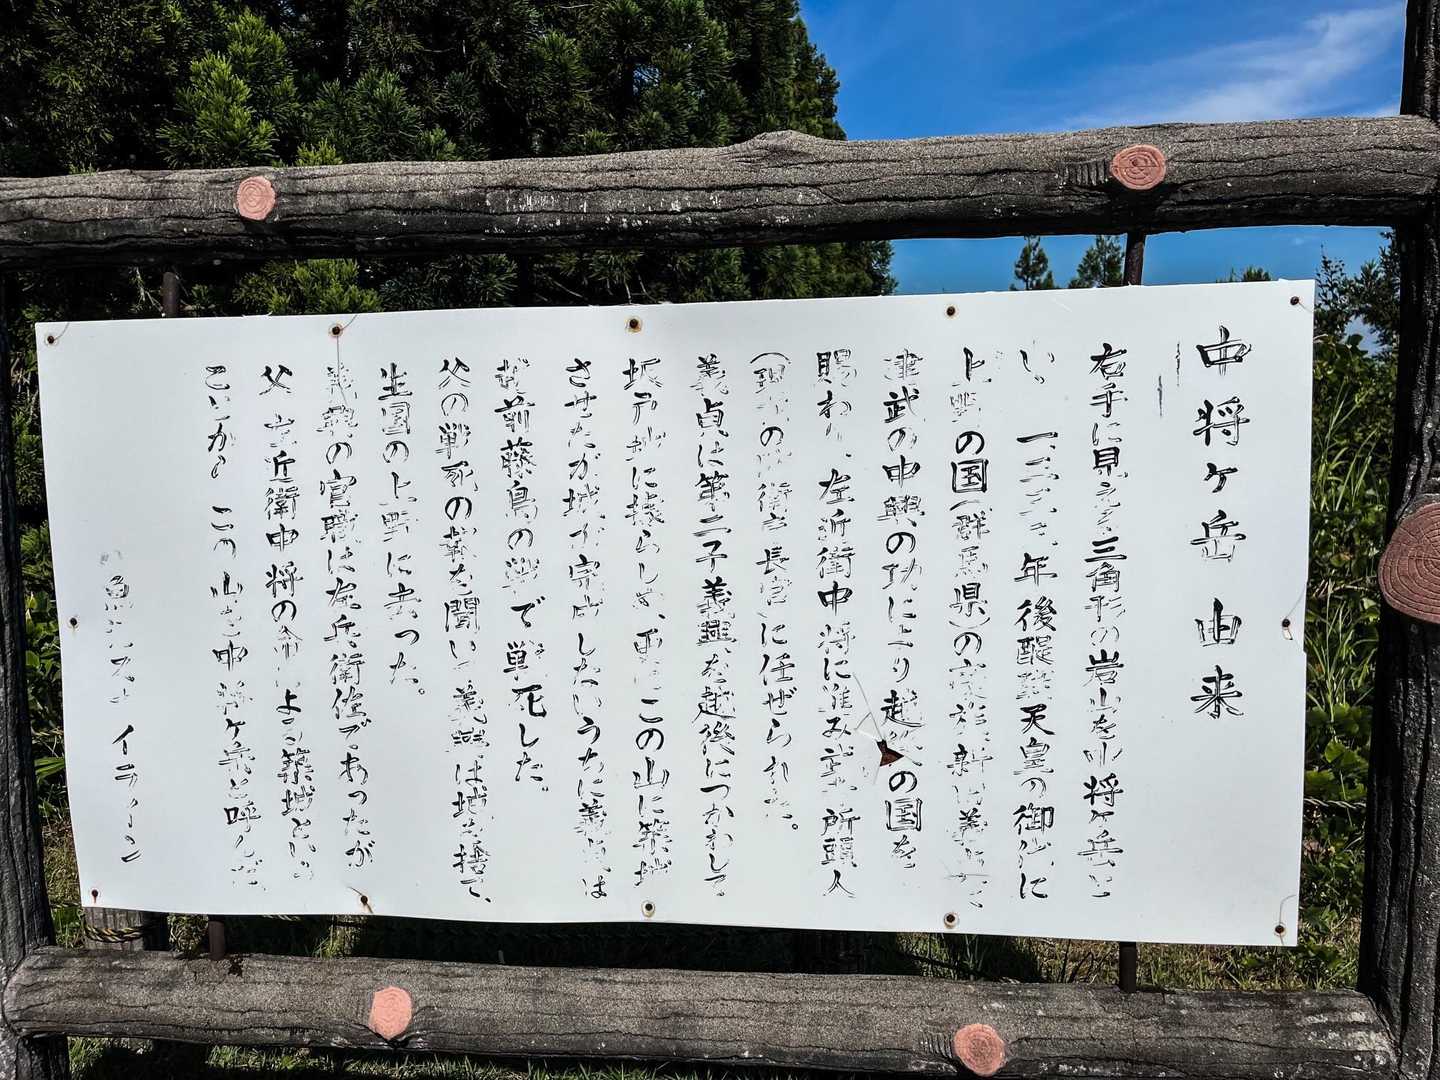 中将ヶ岳 由来
右手に見える三角形の岩山を中将ヶ岳と
い 一三三 年後醍醐天皇の御代に
上野の国(群馬県)の豪族新田義貞は、
建武の中興の功により越後の国を
賜わり、左近衛中将に進み武者所頭人
(現在の 長官)に任ぜられた。
義貞は第二子義興を越後につかわし
坂戸城に據らしめ、更にこの山に築城
させたが城が完成しないうちに義貞は
越前藤島の戦で戦死した。
父の戦死の報を聞いて義興は城を捨て、
生国の上野に去った。
義興の官職は左兵衛佐であったが
父 左近衛中将の命による築城という
ことから この山を中将ヶ岳と呼んだ。